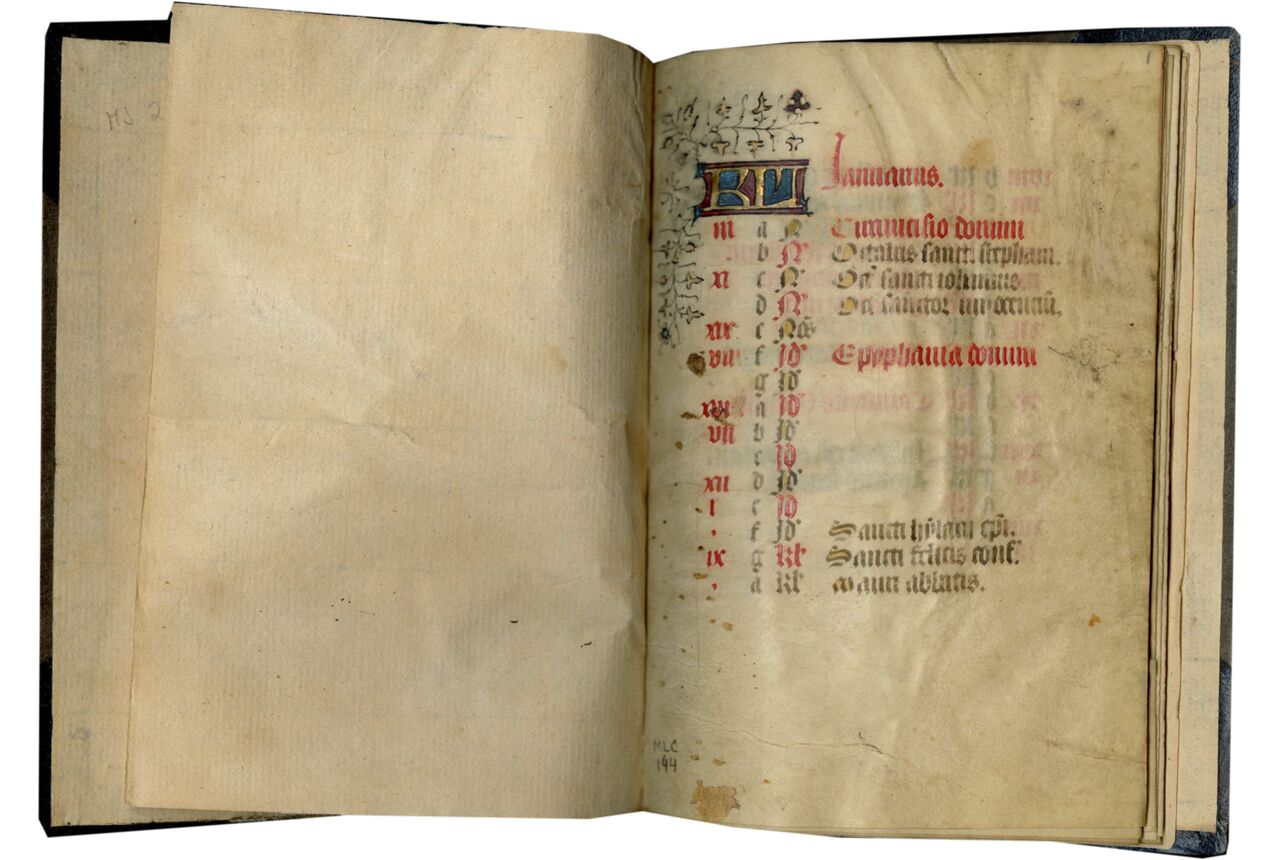 MS. 2
1
KL Januarius.
iii a N Circumcisio domini
b N Octabas sancti stephani.
xi c N Oct sancti iohannis.
d N Oct sanctor innocentiu.
xix e Nos
viii f Id Epyphania domini
g Id
xvi a Id
v b Id
c Id
xiii d Id
i e Id
f Id Sancti hylarii epi.
ix g Kl Sancti felicis conf.
a Kl Mauri abbatis.
MLC
144